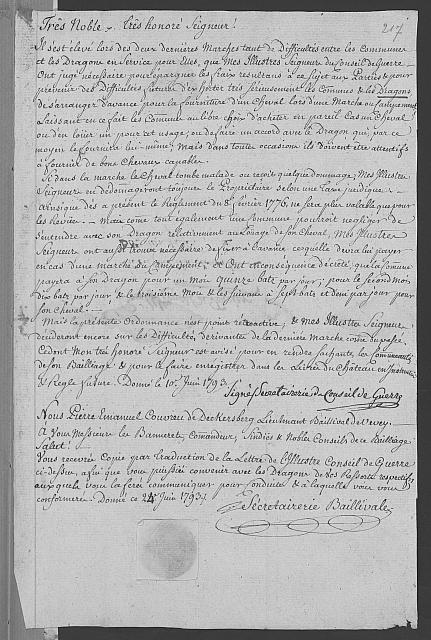 217
Très Noble & très honoré Seigneur!
Il s'est élevé lors des deux dernières Marches tant de difficultés entre les Communes
et les Dragons en Service pour Elles, que Mes Illustres Seigneurs du Conseil de Guerre
Ont jugé nécessaire pour épargner les fraix resultans à ce sujet aux Parties & pour
prévenir des Difficultés futures d'exhorter très sérieusement les Communes & les Dragons,
de s'arranger d'avance pour la fourniture d'un Cheval lors d'une Marche ou Campement
Laissant en ce fait les Communes au libre choix d'acheter en pareil Cas un Cheval
ou d'en loüer un pour cet usage, ou de faire un accord avec le Dragon qui par ce
moyen le fournira lui-même; Mais dans toute occasion ils doivent être attentifs
à fournir de bons Chevaux capables.
Si dans la marche le Cheval tombe malade ou reçoit quelque dommage, Mes Illustres
Seigneurs en dédommageront toujours le Propriétaire selon une Taxe juridique.
Ainsi que dès a présent le Reglement du 8e février 1776. ne sera plus valable que pour
les Revües. Mais come tout également une Commune pourroit negliger de
s'entendre avec son Dragon relativement au Loüage de son Cheval, Mes Illustres
Seigneurs ont aussi trouvé nécessaire de fixer à l'avance ce qu'elle devra lui payer
en cas d'une marche ou Campement; & Ont en conséquence décrété, que la Comune
payera à son Dragon pour un mois quinze batz par jour; pour le second Mois
dix batz par jour & le troisième Mois & les suivans à sept batz et demi par jour pour
son Cheval.
Mais la présente Ordonnance n'est point retroactive, & Mes Illustres Seigneurs
décideront encore sur les difficultés dérivantes de la derniere Marche come du passé.
Ce dont Mon très honoré Seigneur est avisé pour en rendre sachantes les Communautés
de son Bailliage & pour la faire enregistrer dans les Livres du Château
& Règle future. Donné le 10e Juin 1793.
Signé Secrétairerie du Conseil de Guerre
Nous Pierre Emanuel Couvreu de Deckersberg Lieutenant Baillival de Vevey.
A Vous Messieurs les Bannerets, Comandeur, Sindics & Nobles Conseils de ce Bailliage
Salut!
Vous recevrés Copie par Traduction de la Lettre de l'Illustre Conseil de Guerre
ci-dessus, afin que vous puissiés convenir avec les Dragons de vos Ressorts respectifs
auxquels vous la ferés communiquer pour conduite & à laquelle vous vous
conformerés. Donné ce 24e Juin 1793.
Secrétairerie Baillivale